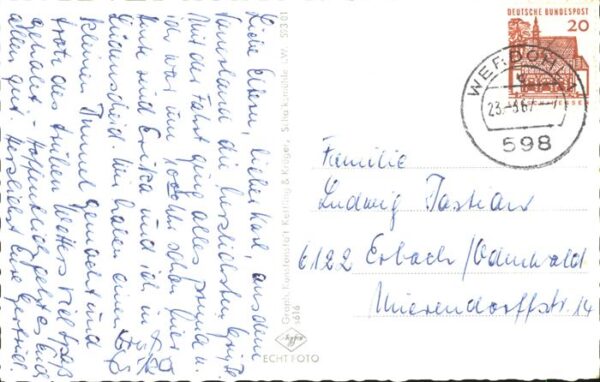 Liebe Eltern, lieber Karl, aus dem
Sauerland die herzlichsten Grüße
Mit der Fahrt ging alles prima u.
ich war um Uhr schon hier
und Erika und ich in
Lüdenscheid. Wir haben einen
kleinen Bummel gemacht und
trotz des trüben Wetters viel Spaß
gehabt. Hoffentlich geht es Euch
allen gut. Herzlichst Eure Gertrud.
Graph. Kunstanstalt Ketting & Krüger, Schalksmühle i.W. 593 81
5616
Agfa
ECHT FOTO
DEUTSCHE BUNDESPOST
20
WERDOHL
23.-3.67
598
Familie
Ludwig Tastian
6122 Erbach/Odenwald
Mierendorffstr. 14